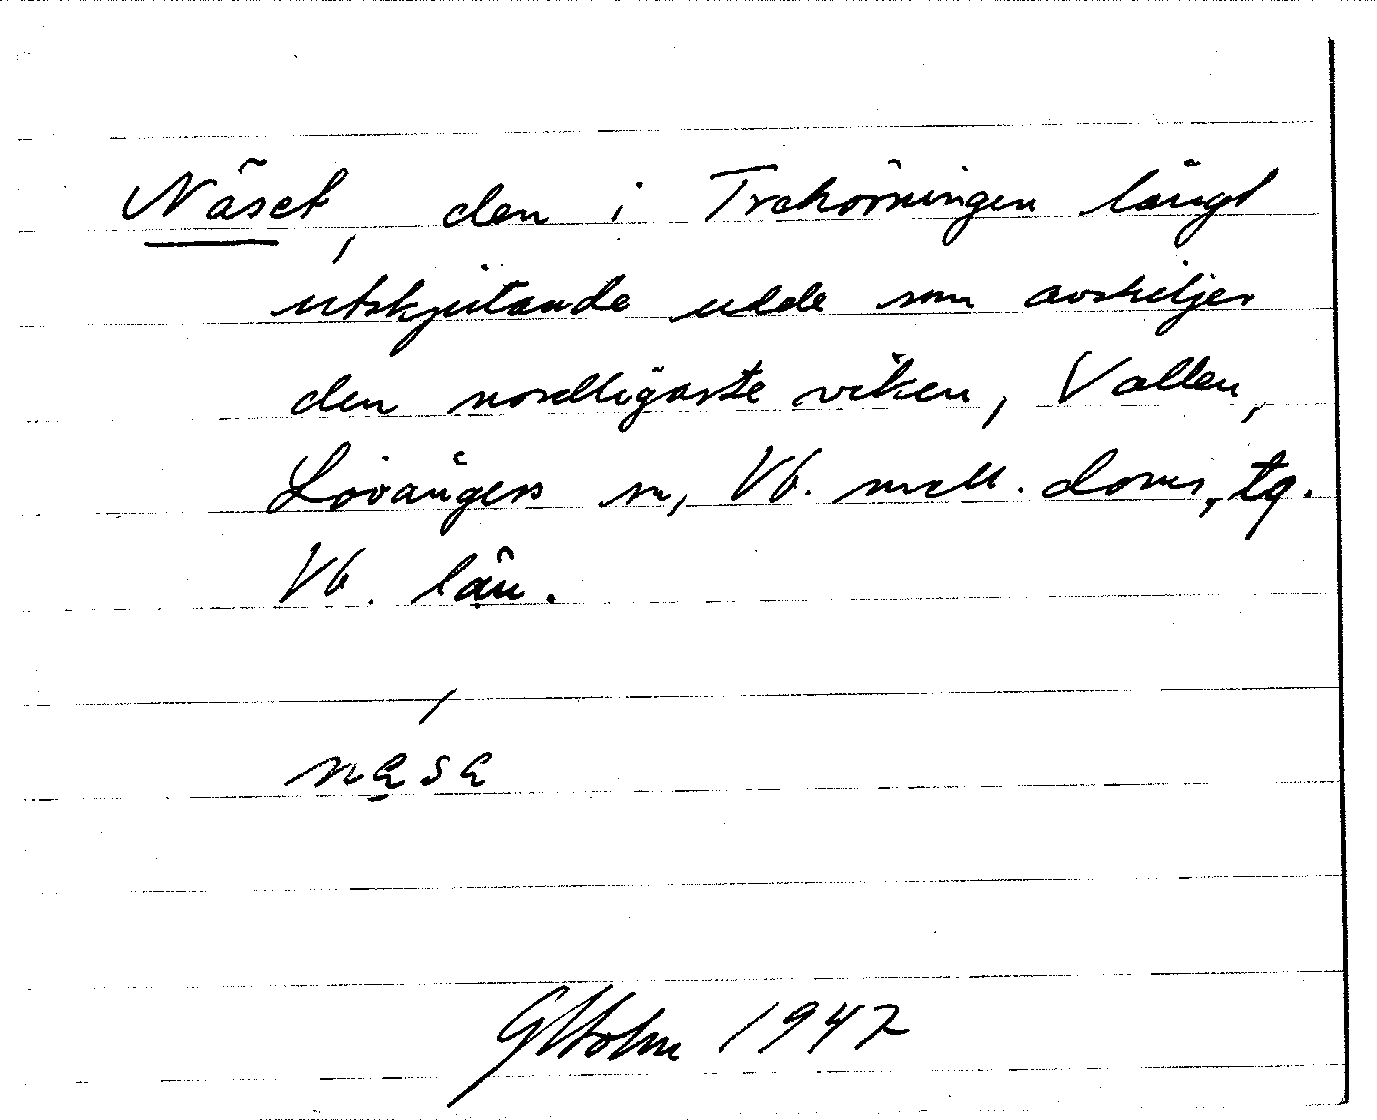 Näset, den i Trehörningen långt
utskjutande udde som avskiljer
den nordligaste viken, Vallen,
Lövångers sn, Vb. mell. doms. tg.
Vb. län.
GHolm 1947